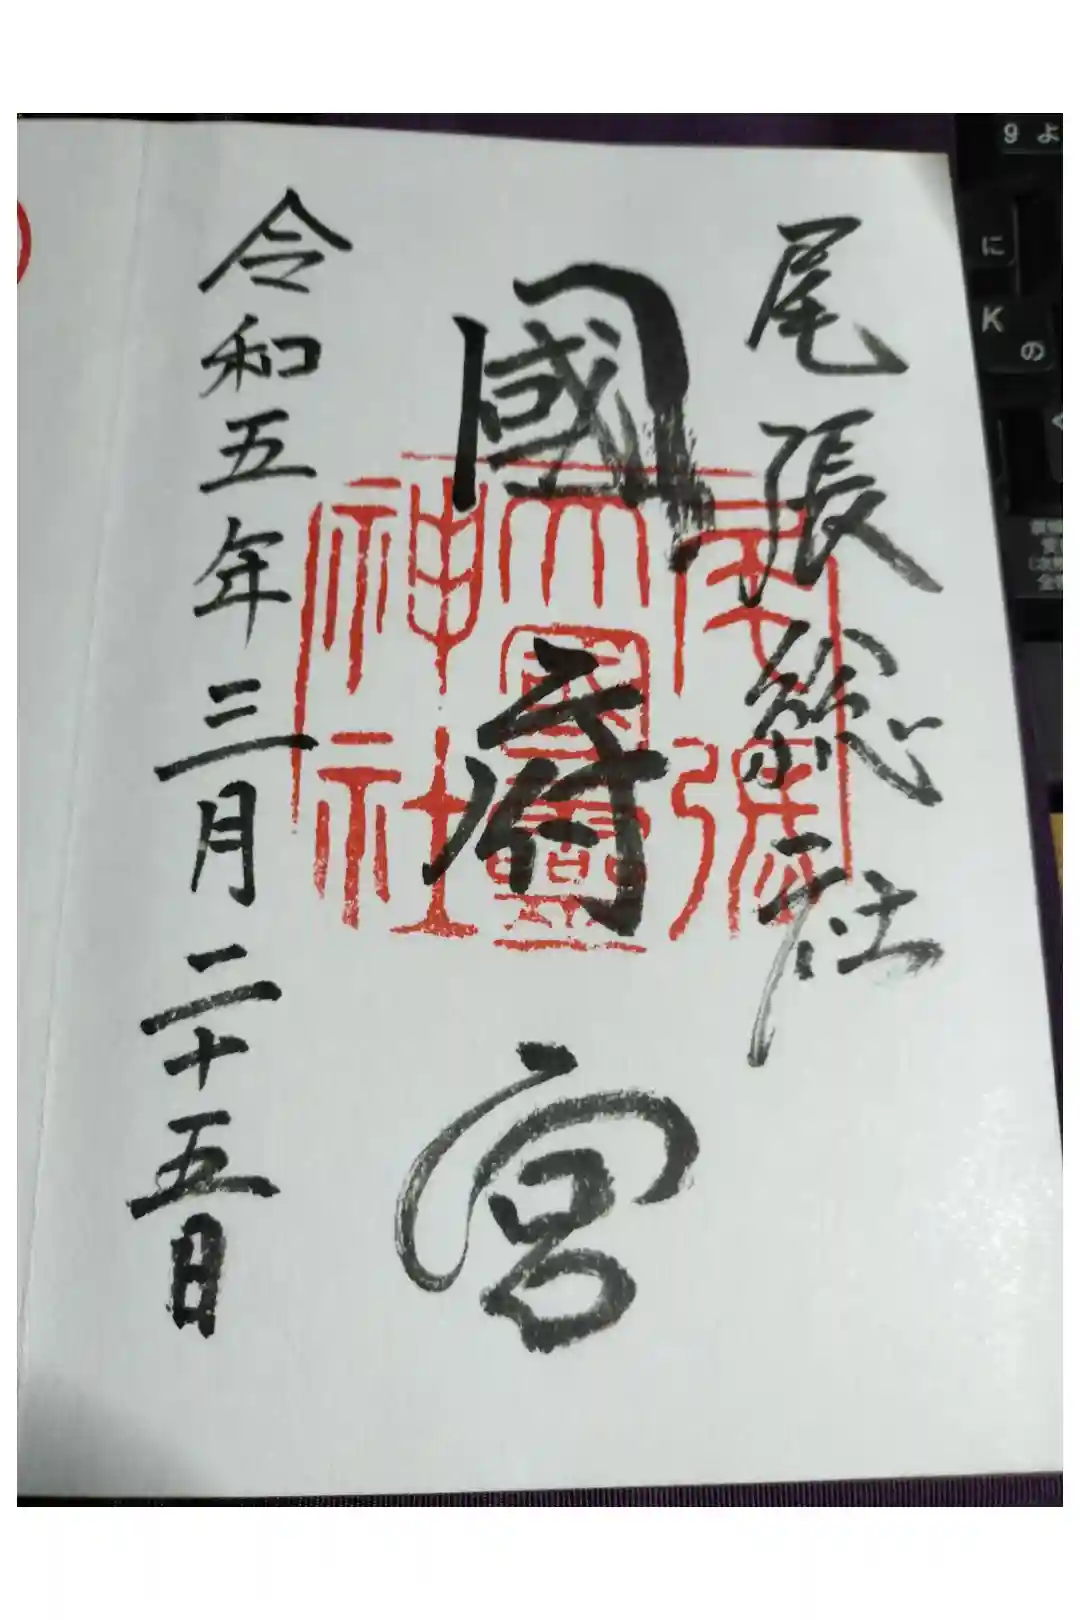 尾張総社
國府宮
令和五年三月二十五日
尾張
大國霊
神社
9 よ
に
K
の